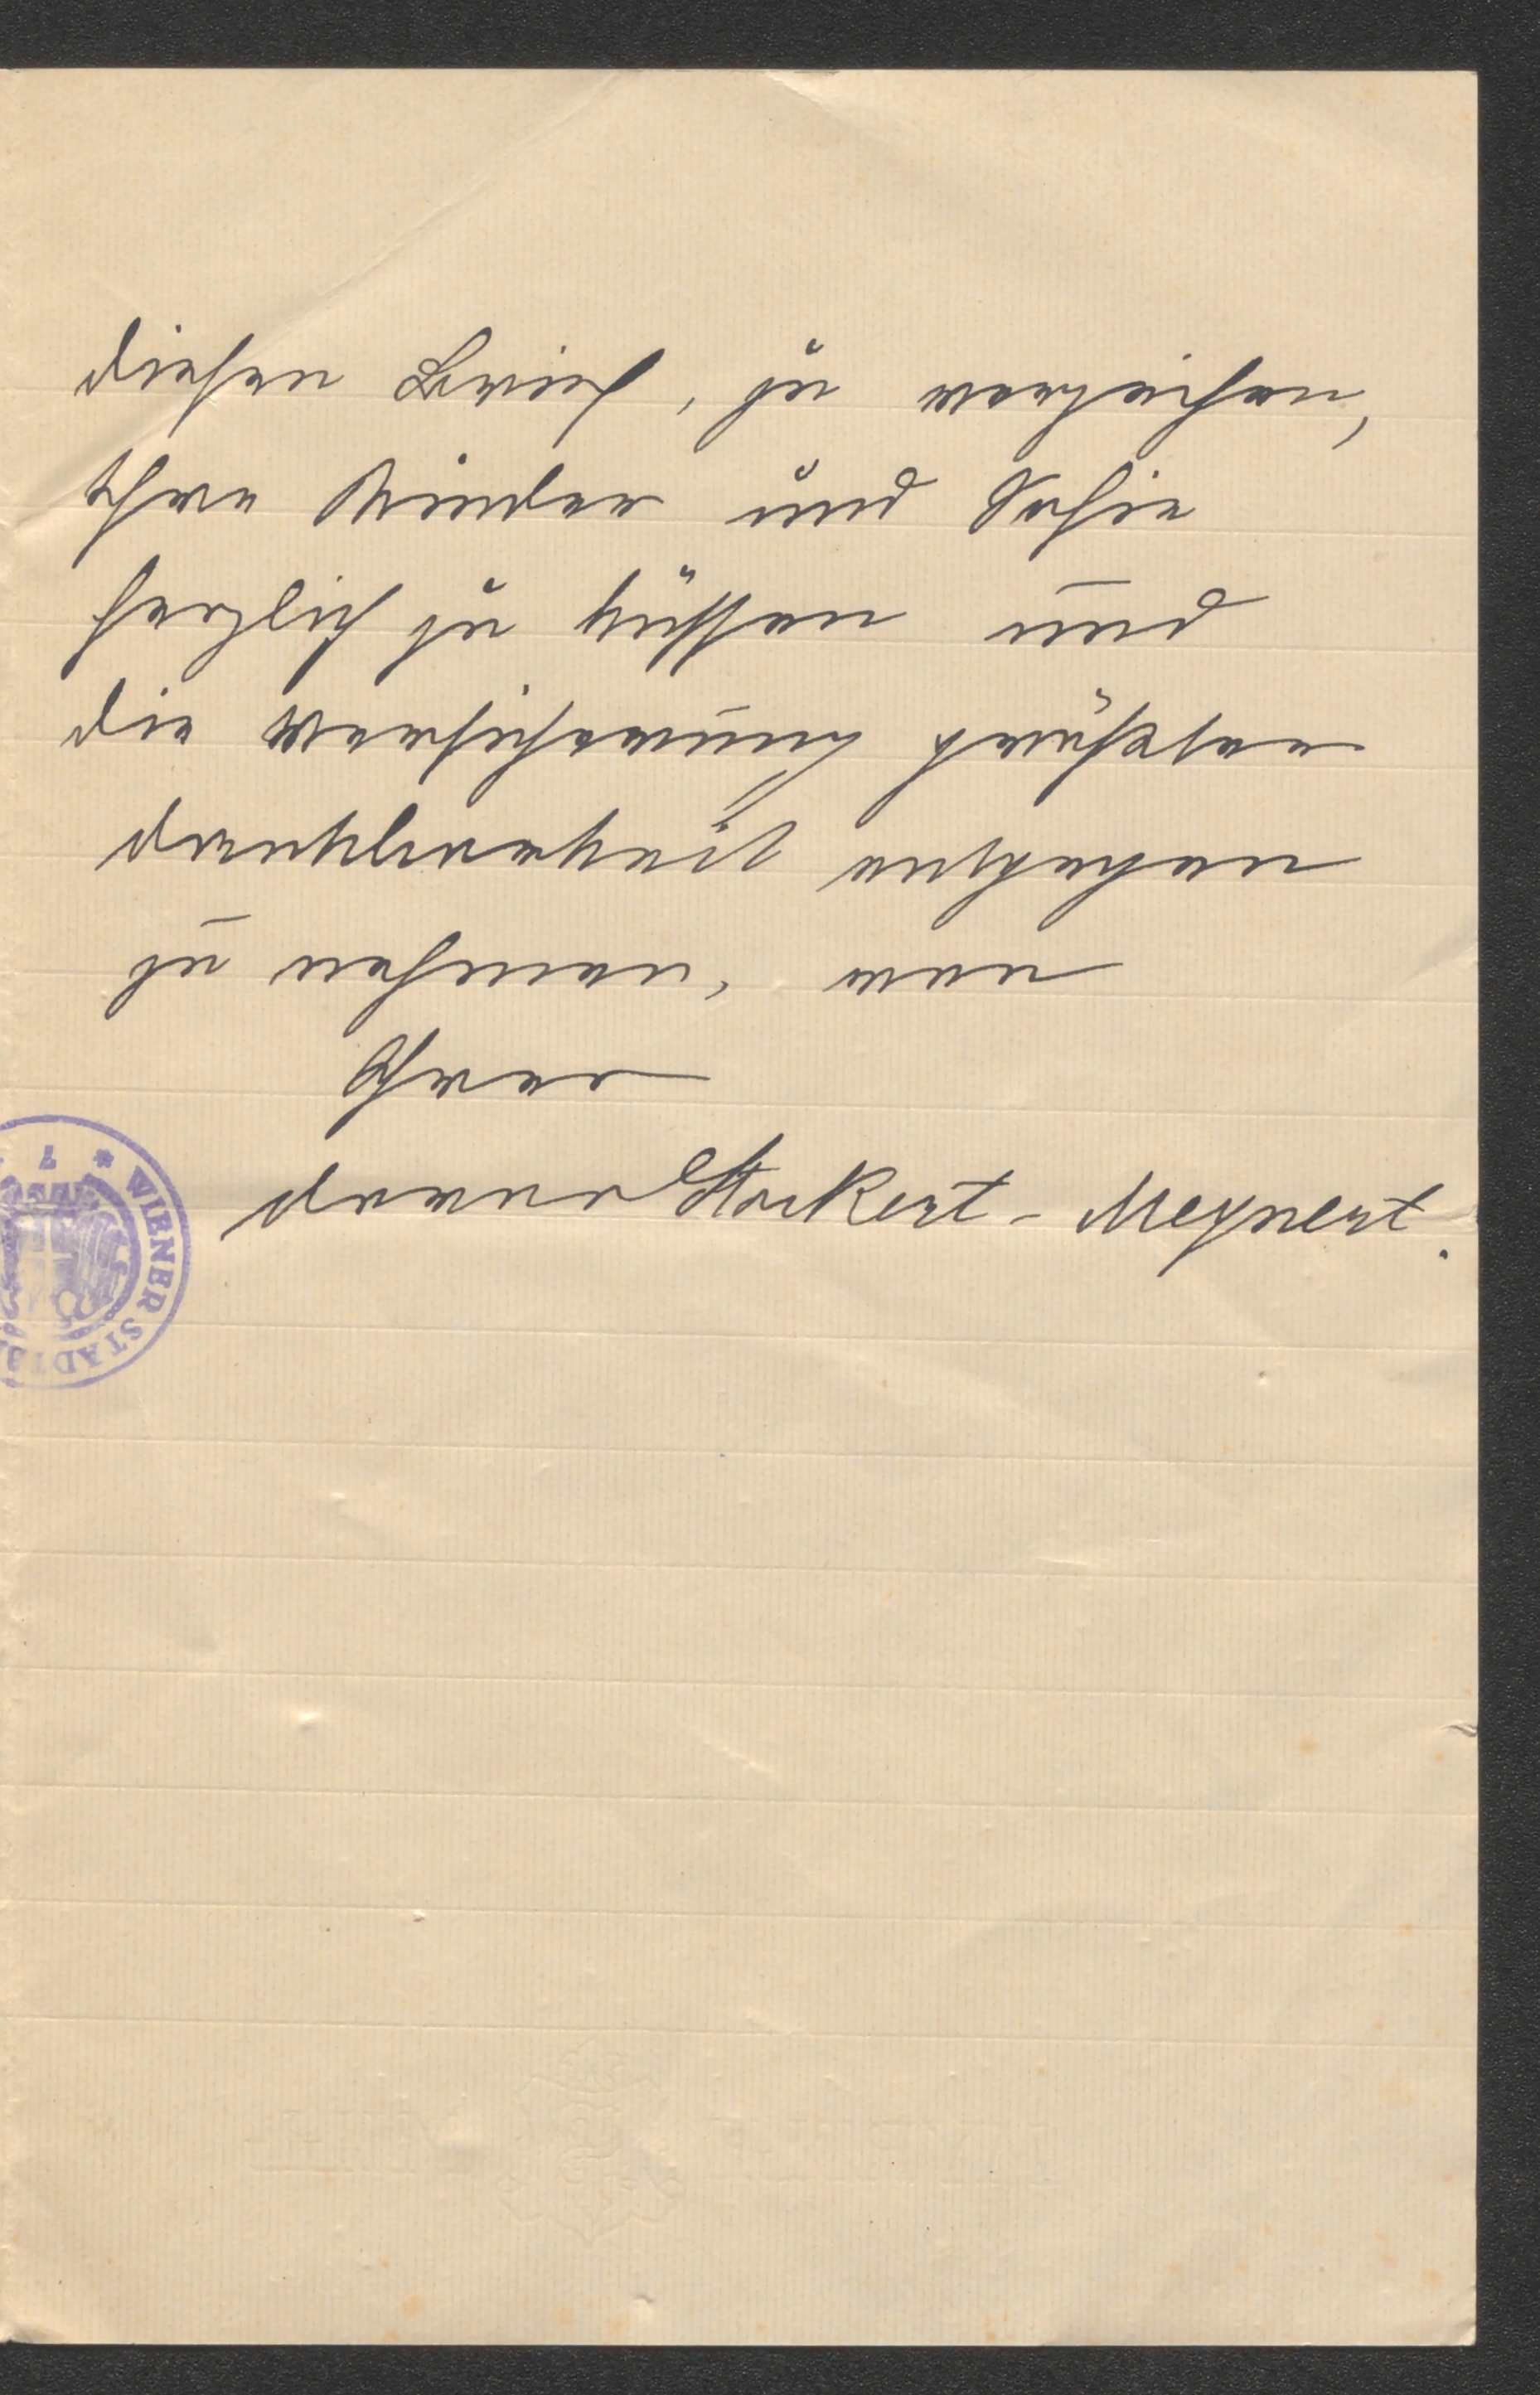 diesen Brief, zu verzeihen,
Ihre Kinder und Sofie
herzlich zu küssen und
die Versicherung größter
Dankbarkeit entgegen
zu nehmen, von
Ihrer
Dora Stockert-Meynert.
* WIENER STADTB
7